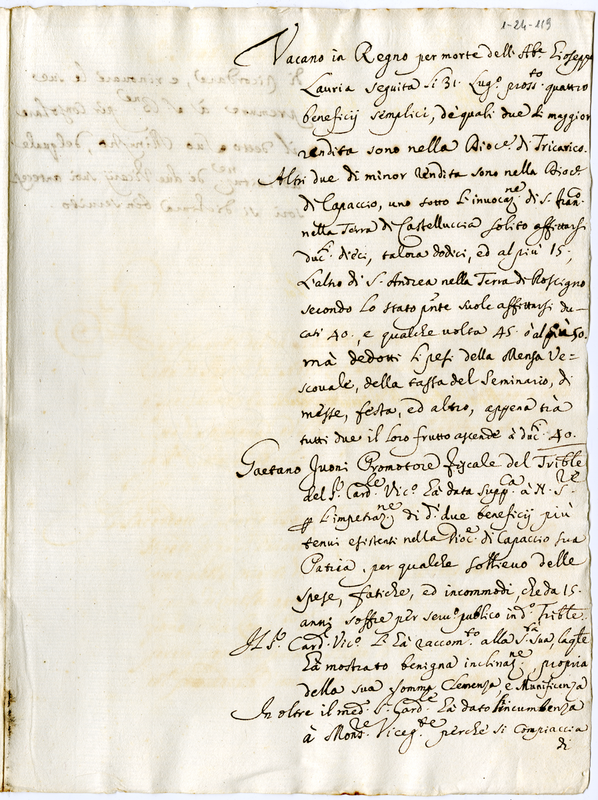 1-24-119
Vacano in Regno per morte dell' Ab.e Gioseppe
Lauria seguita li 31. Lug.o pross.to quattro
beneficij semplici, de' quali due di maggior
rendita sono nella Dioce. di Tricarico.
Altri due di minor rendita sono nella Dioce.
di Capaccio, uno sotto l'invocaz.ne di S.
nella Terra di Castelluccia solito affittarsi
duc.i dieci, talora dodici, ed al più 15.
L'altro di S. Andrea nella Terra di Roscigno
secondo lo stato pnte suole affittarsi du-
cati 40., e qualche volta 45. ò al più 50.
mà dedotti li pesi della Mensa Ve=
scovale, della tassa del Seminario, di
messe, festa, ed altro, appena trà
tutti due il loro frutto ascende à duc.i 40.
Gaetano Juoni Promotore fiscale del Trible
del S.r Card.le Vic.o hà data supp.ca à N. S.re
p l'impetraz.ne di d.i due beneficij più
tenui esistenti nella Dioc.e di Capaccio sua
Patria, per qualche sollievo delle
spese, fatiche, ed incommodi, che da 15.
anni soffre per serv.o publico in d.o Trible.
Il S.r Card. Vic.o l'hà raccom.to alla S.tà Sua, la qle
hà mostrato benigna inclinaz.ne, propria
della sua somma Clemenza, e Munificenza
In oltre il med.o S.r Card.e hà dato l'incumbenza
à Mons.re Viceg.te perche si compiaccia
di